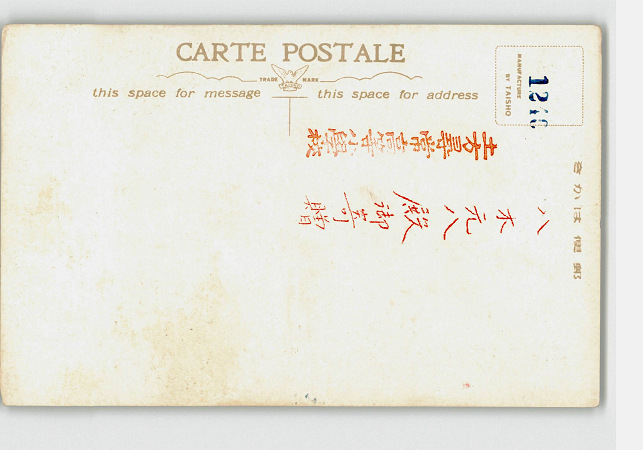 CARTE POSTALE
TRADE MARK
this space for message
this space for address
MANUFACTURE
BY TAISHO
土方尋常高等小學校
八木元八殿御寄贈
きかは便郵